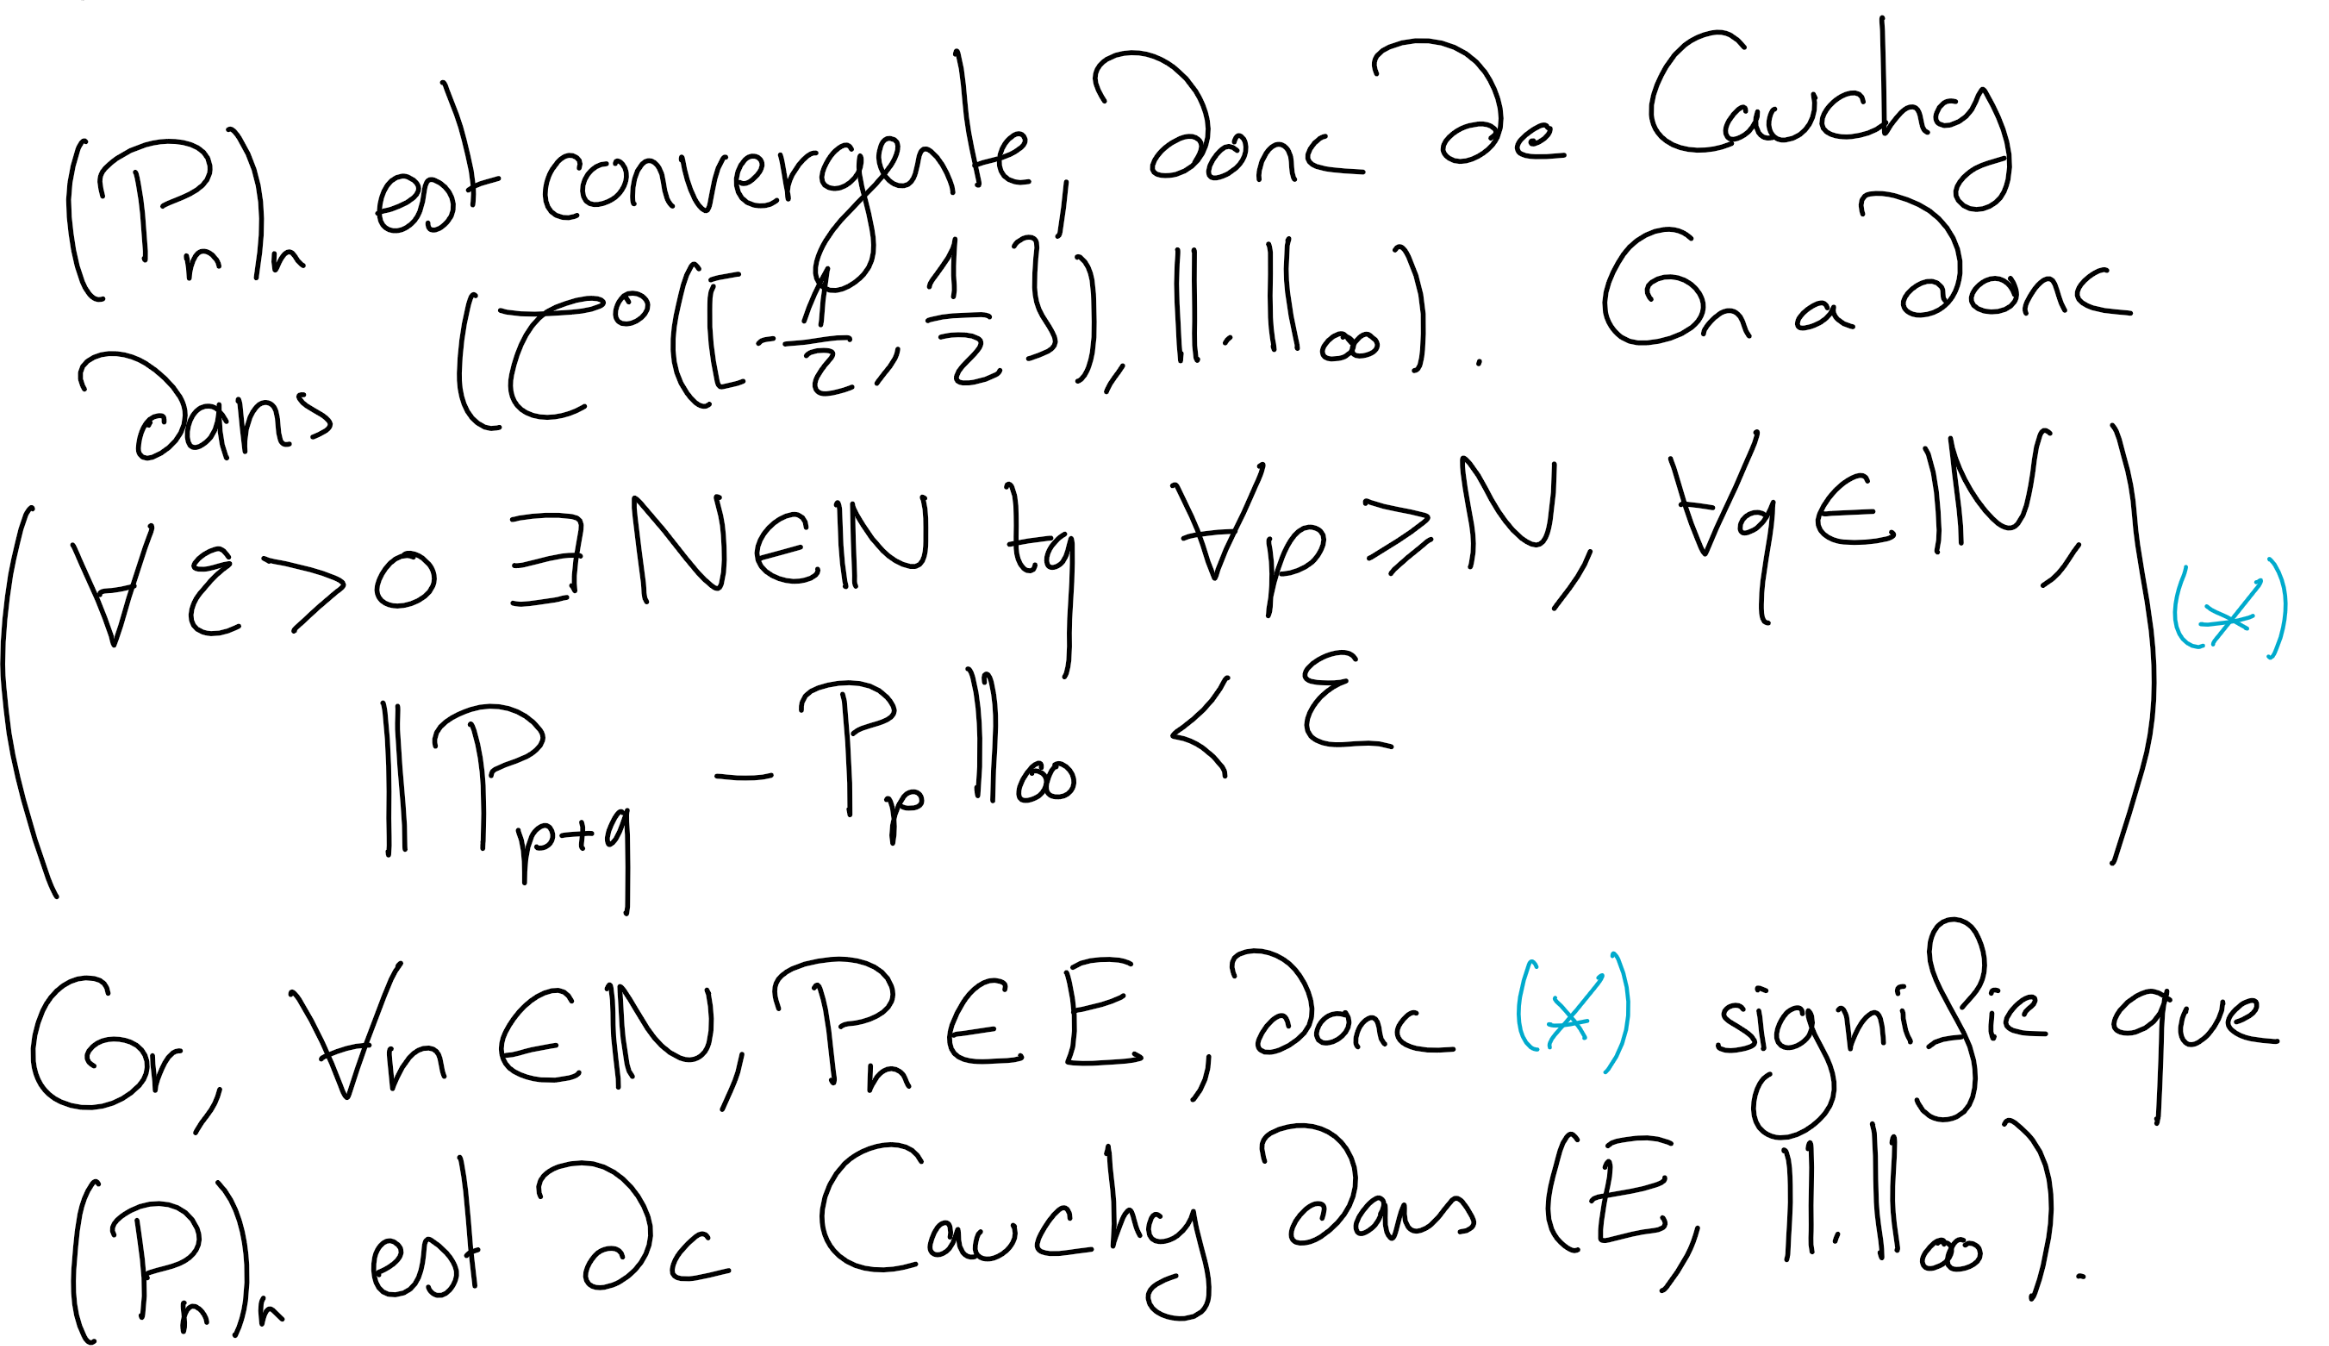 (Pₙ)ₙ est convergente, donc de Cauchy
dans (C⁰([-1/2, 1/2]), ||.||∞). On a donc
(∀ε>0 ∃N∈ℕ tq ∀p⩾N, ∀q∈ℕ,
||Pₚ₊q − Pₚ||∞ < ε) (*)
Or, ∀n∈ℕ, Pₙ∈E, donc (*) signifie que
(Pₙ)ₙ est de Cauchy dans (E, ||.||∞).